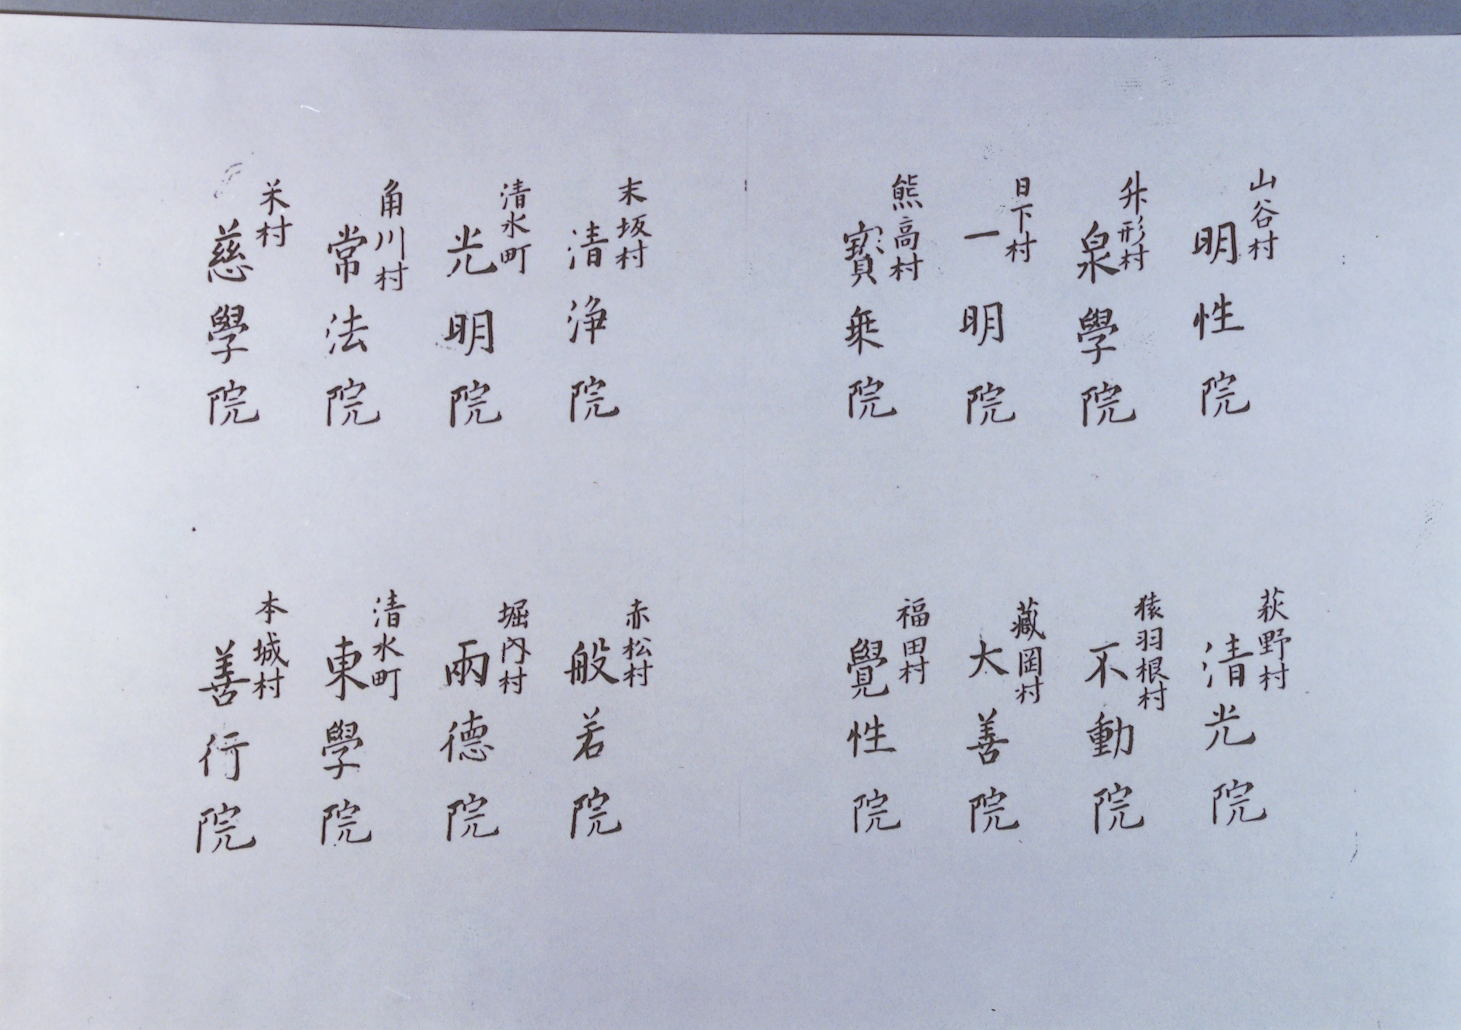 山谷村
明性院
升形村
泉學院
日下村
一明院
熊高村
寳乗院
萩野村
清光院
猿羽根村
不動院
蔵岡村
大善院
福田村
覺性院
末坂村
清浄院
清水町
光明院
角川村
常法院
米村
慈學院
赤松村
般若院
堀内村
両德院
清水町
東學院
本城村
善行院